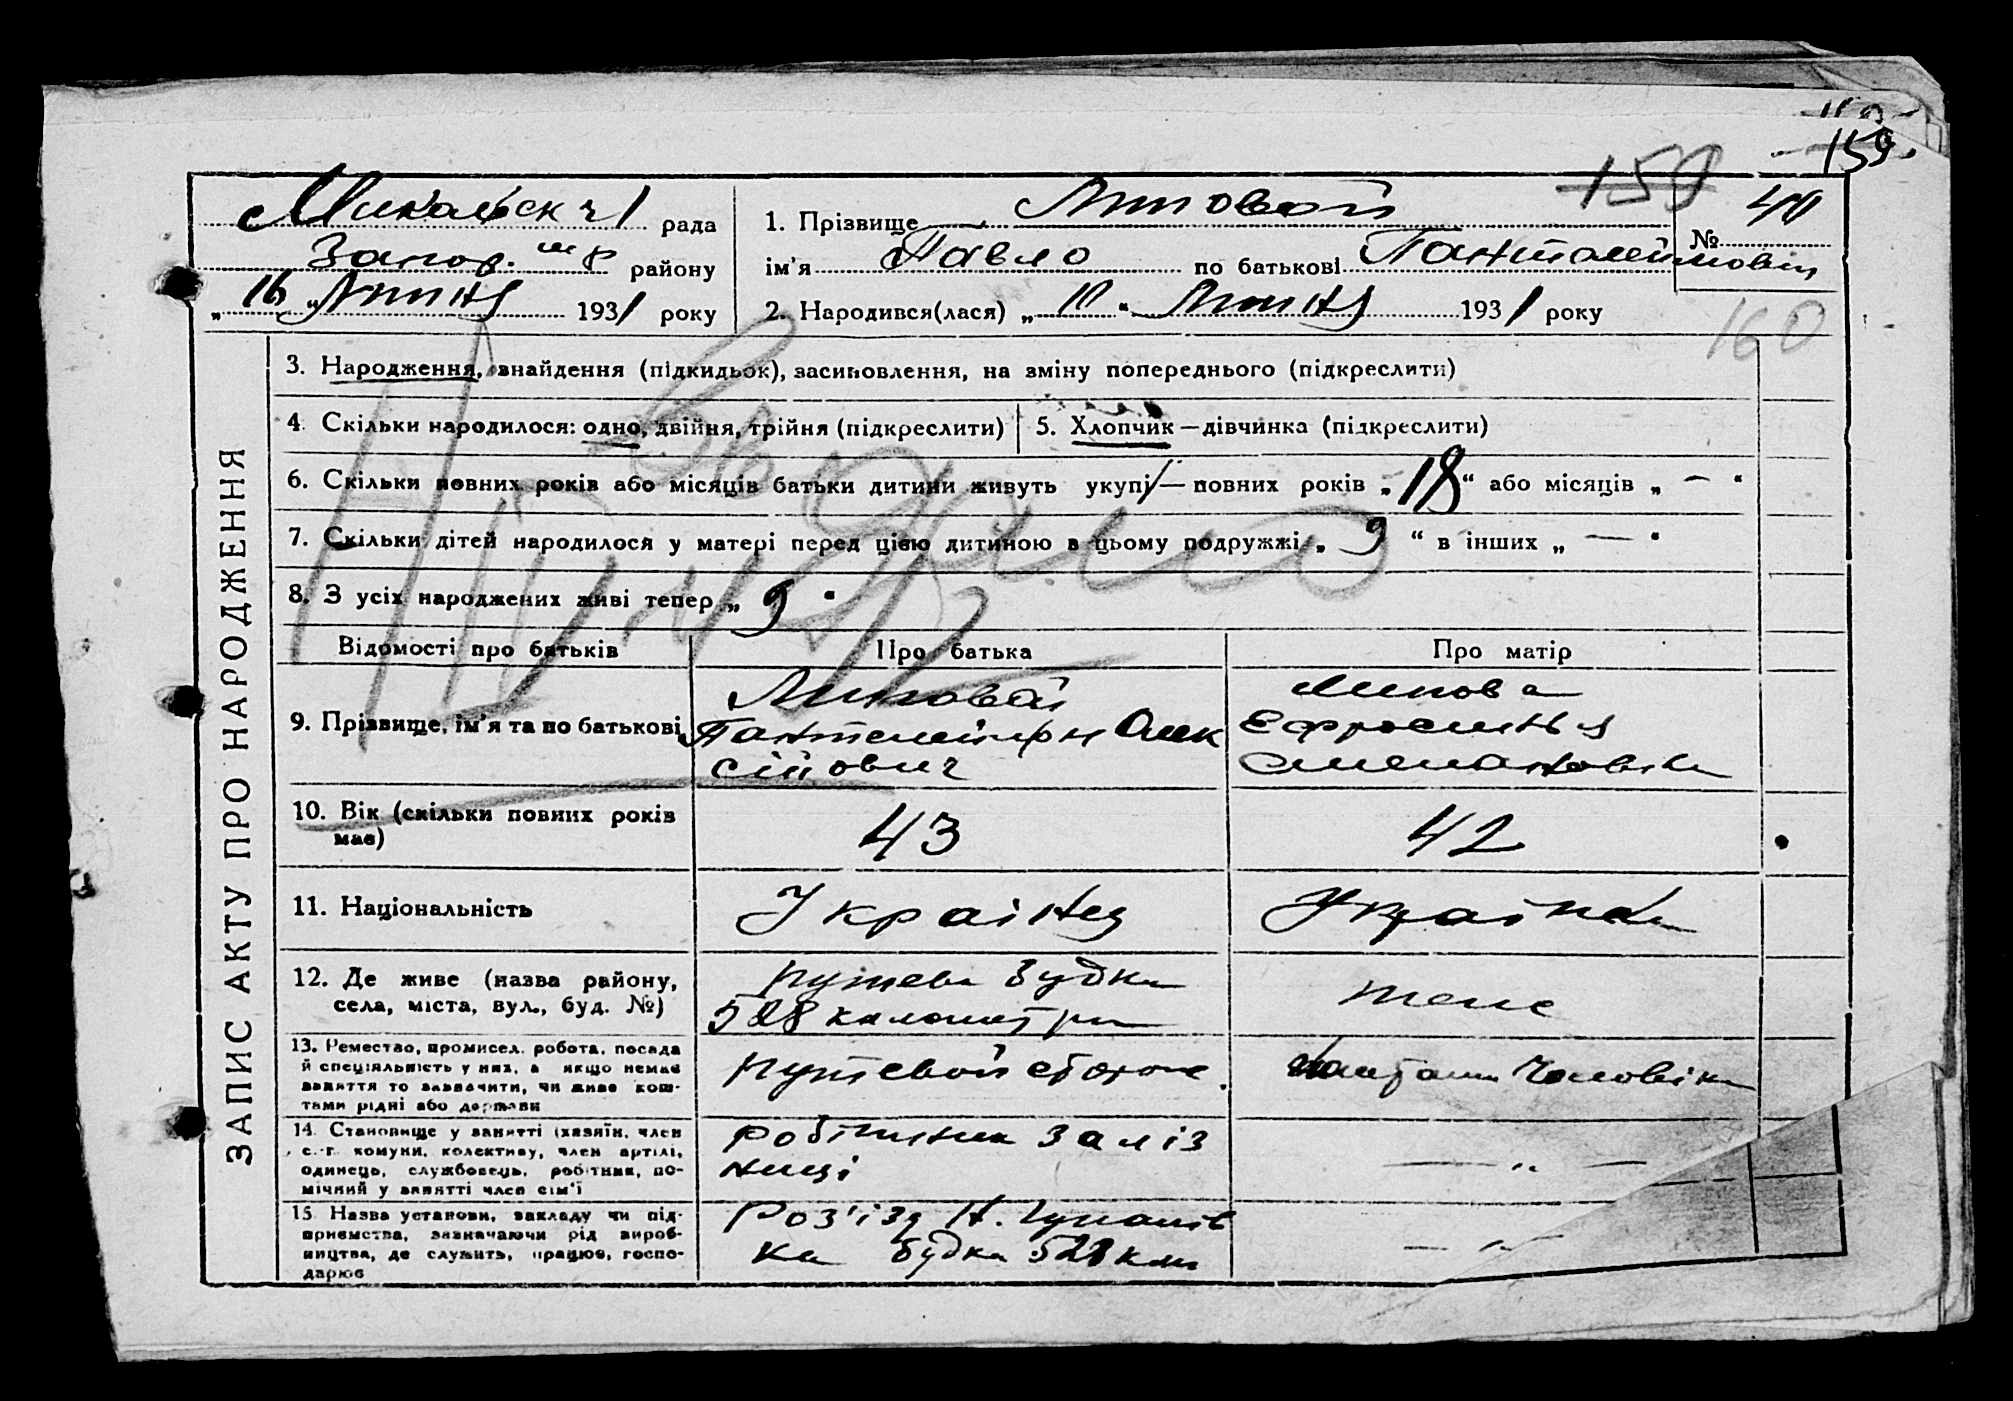 159
159
Микольск рада
1. Прізвище Липовой
№ 40
Запор. району
ім'я Павло по батькові Пантелеймонови
„16„ Липня 1931 року
2. Народився(лася) „10“ Липня 1931 року
160
ЗАПИС АКТУ ПРО НАРОДЖЕННЯ
3. Народження, знайдення (підкидьок), засиновлення, на зміну попереднього (підкреслити)
4. Скільки народилося: одно, двійня, трійня (підкреслити)
5. Хлопчик—дівчинка (підкреслити)
6. Скільки повних років або місяців батьки дитини живуть укупі — повних років „18“ або місяців „ — “
7. Скільки дітей народилося у матері перед цією дитиною в цьому подружжі „ 9 “ в інших „ — “
8. З усіх народжених живі тепер „ 9 “
Відомості про батьків
Про батька
Про матір
9. Прізвище, ім'я та по батькові
Липовой
Пантелеймон Олек
сійович
Липова
Ефросинья
10. Вік (скільки повних років
має)
43
42
11. Національність
Українец
Українка
12. Де живе (назва району,
села, міста, вул., буд. №)
путева будка
528 километри
тоже
13. Ремество, промисел, робота, посада
й спеціяльність у них, а якщо немає
заняття то зазначити, чи живе кош-
тами рідні або держави
путевой сторож
Чоловіка
14. Становище у занятті (хазяїн, член
с.-г. комуни, колективу, член артілі,
одинець, службовець, робітник, по-
мічний у занятті член сім'ї
робітник заліз
ниці
— „ —
15. Назва установи, закладу чи під-
приємства, зазначаючи рід вироб-
ництва, де служить, працює, госпо-
дарює
Роз'їзд Н.
ка будка 528 км
— „ —